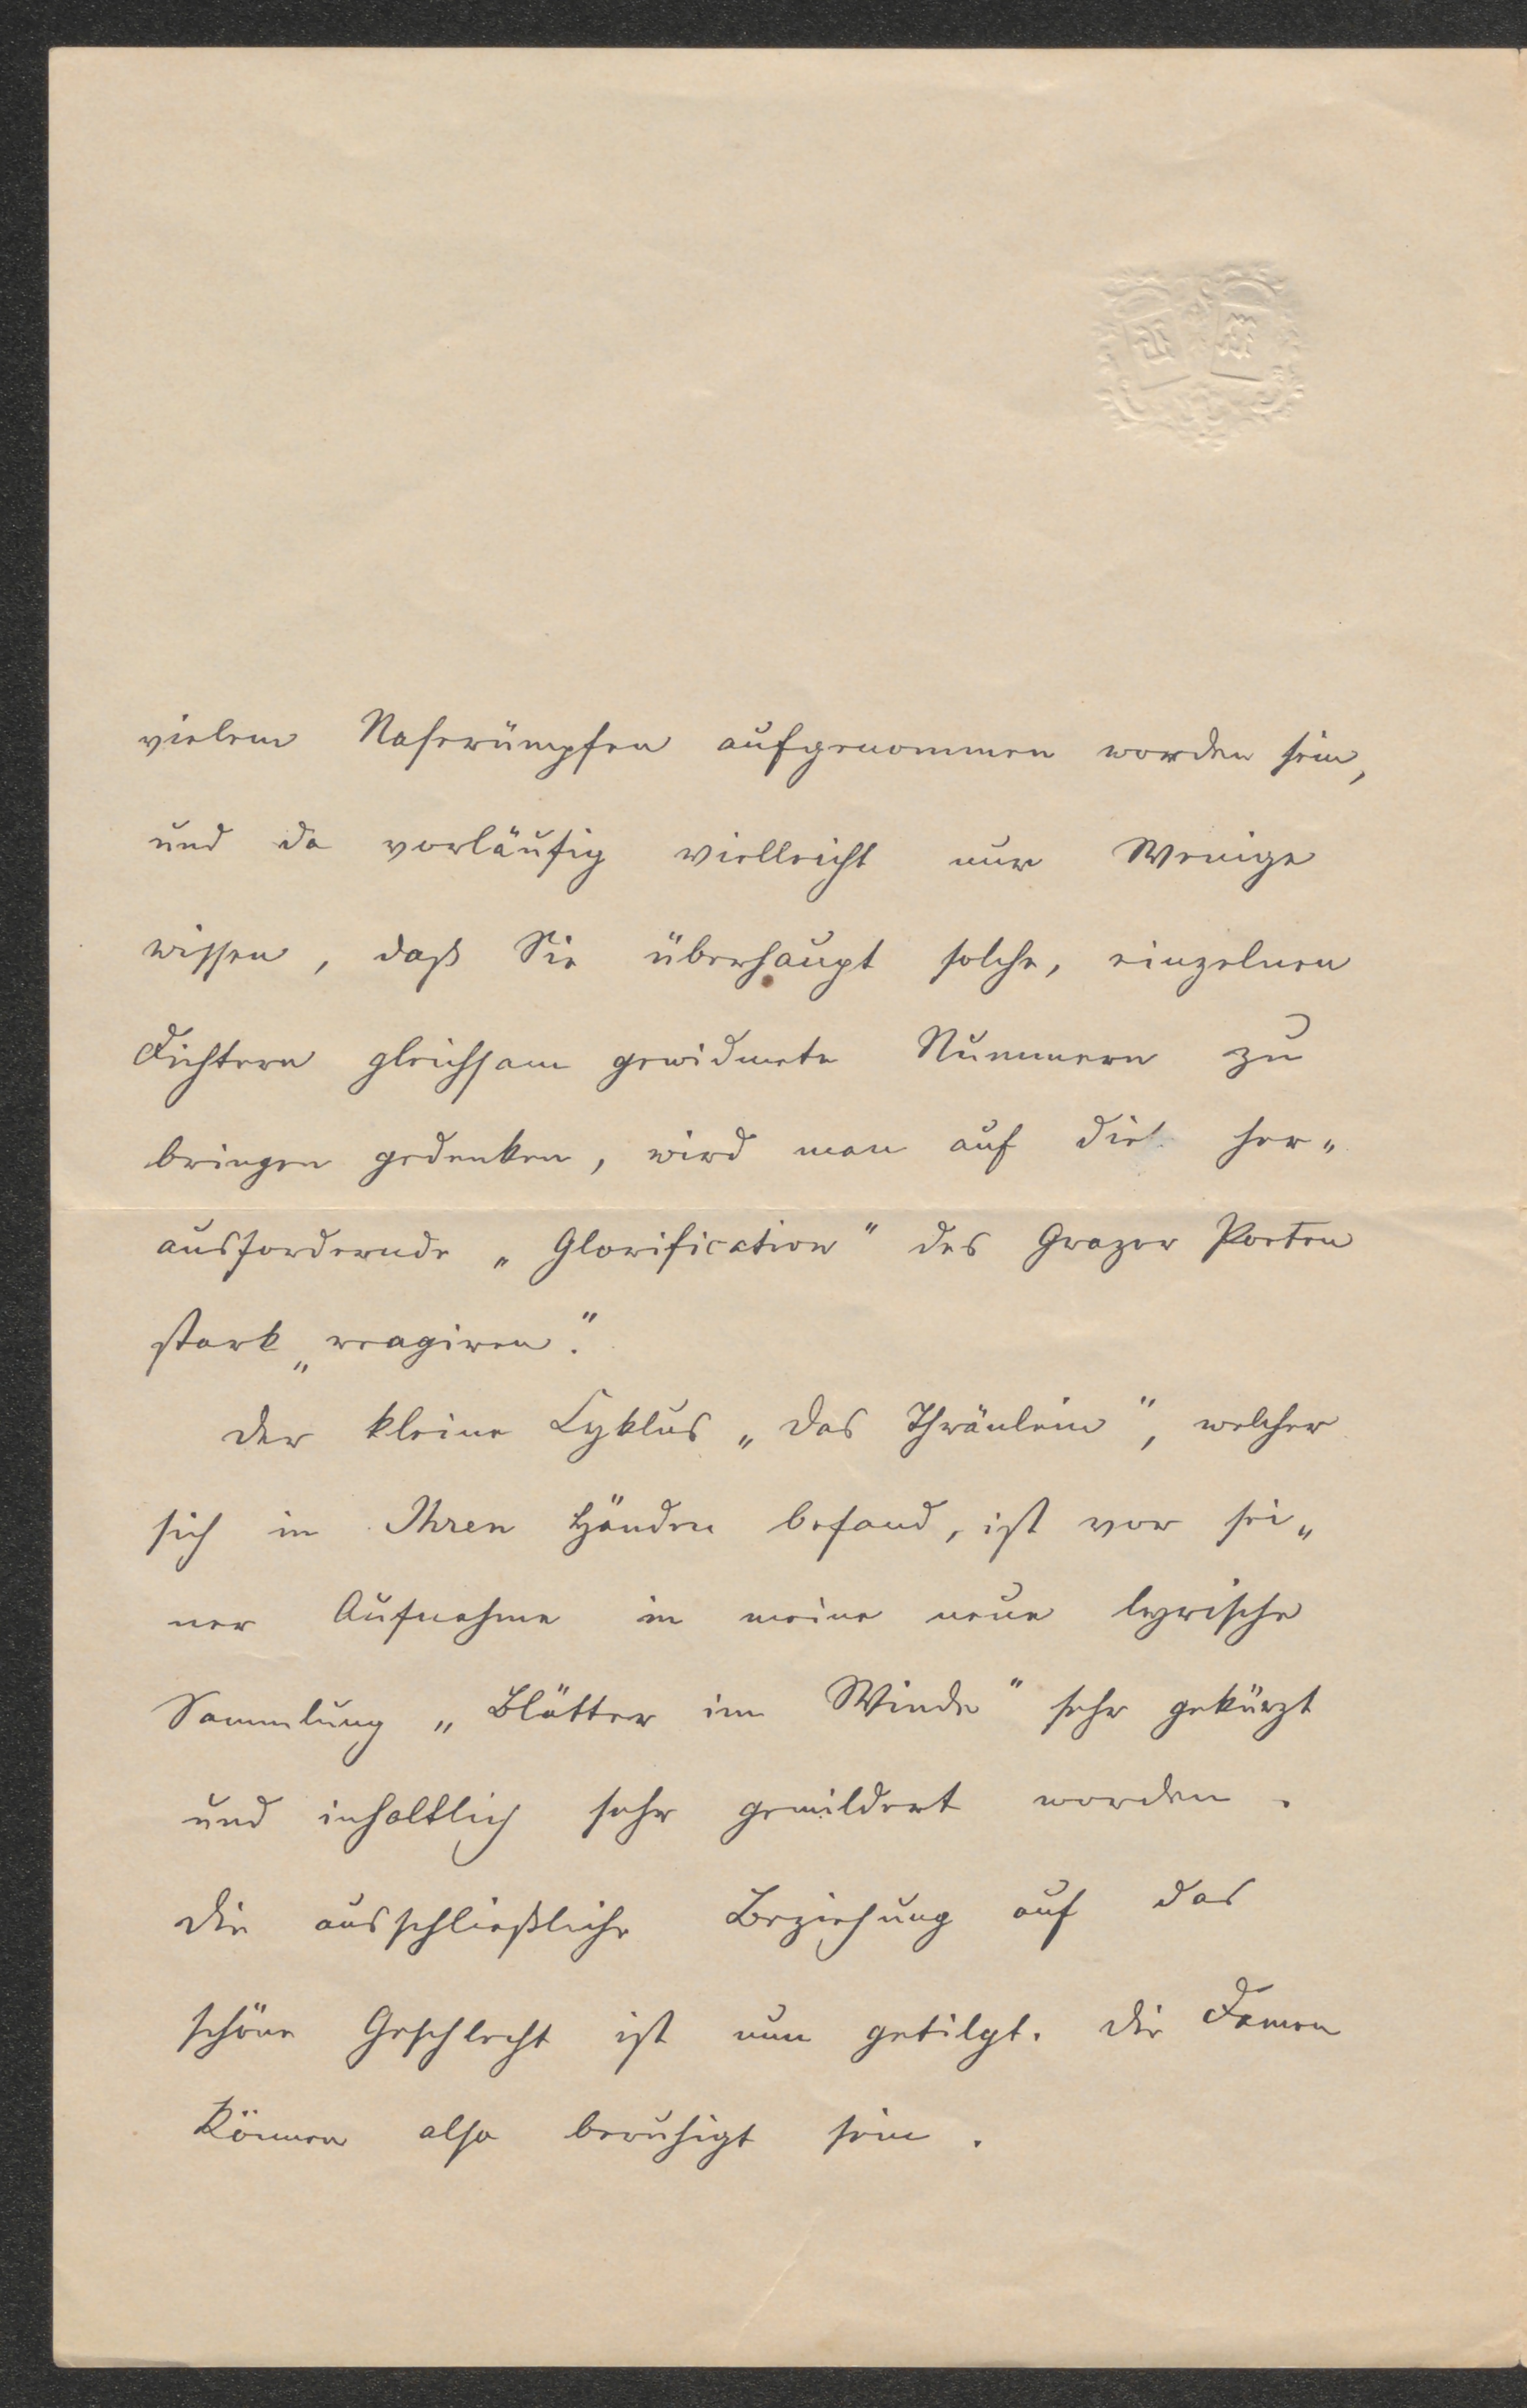 vielem Naserümpfen aufgenommen worden sein,
und da vorläufig vielleicht nur Wenige
wissen, daß Sie überhaupt solche, einzelnen
Dichtern gleichsam gewidmete Nummern zu
bringen gedenken, wird man auf die her„
ausfordernde „Glorification“ des Grazer Poeten
stark „reagiren“.
Der kleine Cyklus „Das Thräulein“, welcher
sich in Ihren Händen befand, ist vor sei„
ner Aufnahme in meine neue lyrische
Sammlung „Blätter im Winde“ sehr gekürzt
und inhaltlich sehr gemildert worden.
Die ausschließliche Beziehung auf das
schöne Geschlecht ist nun getilgt. Die Damen
können also beruhigt sein.